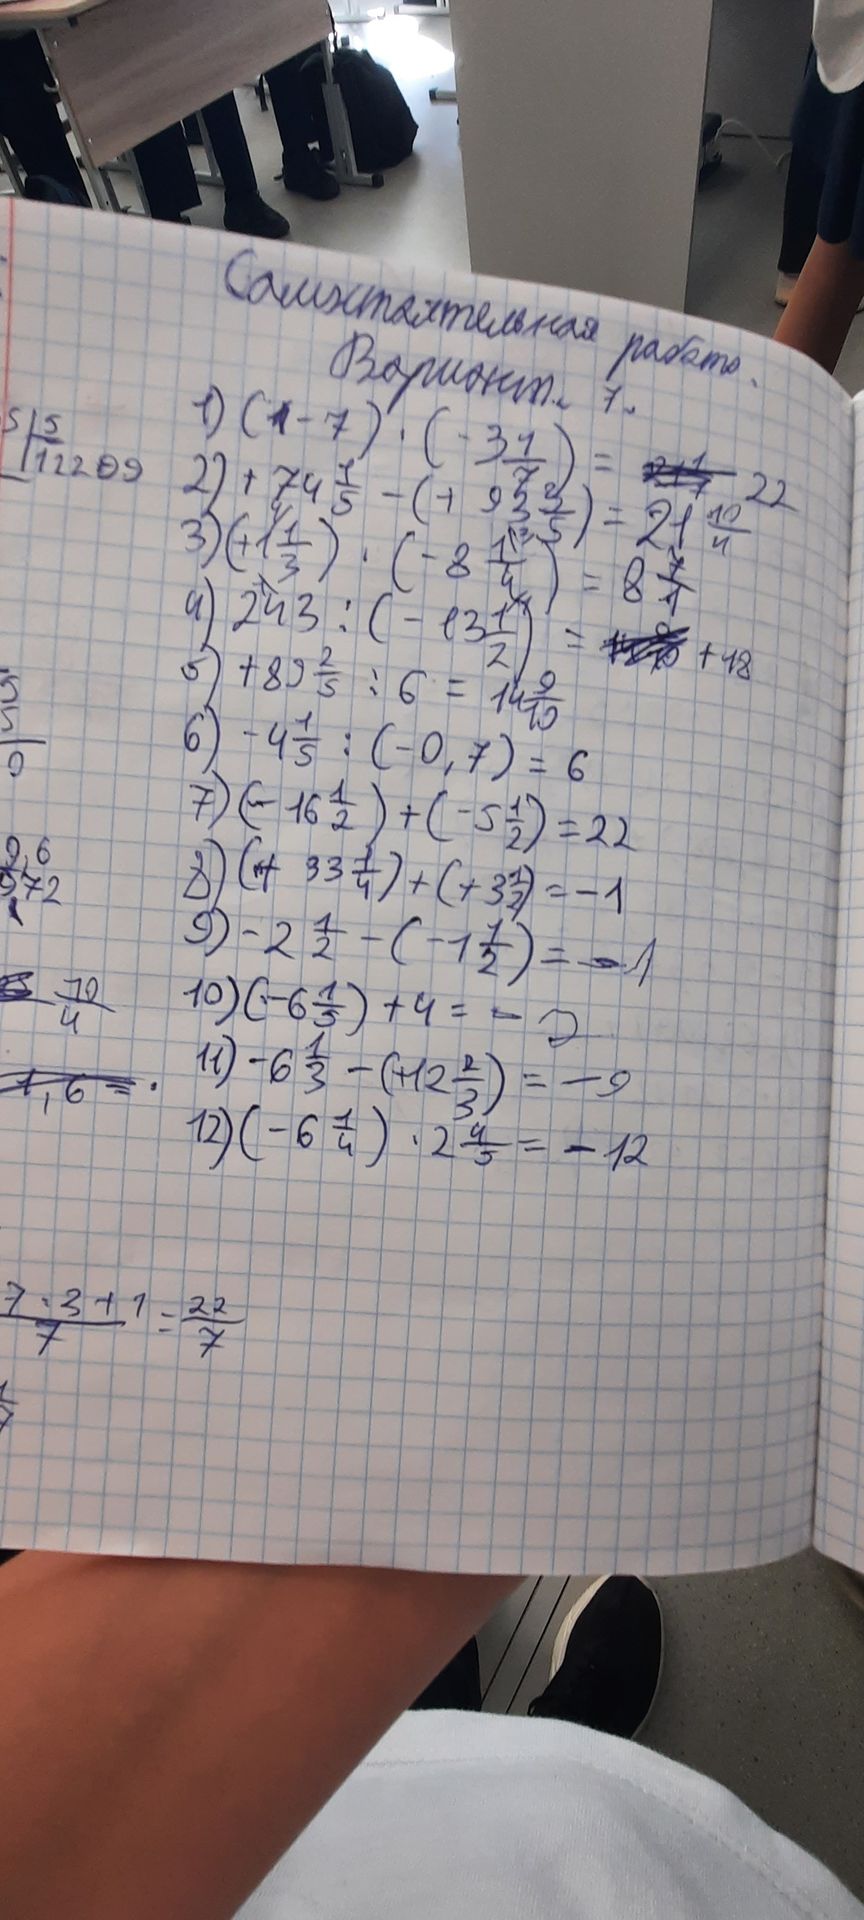 Самостоятельная работа.
Вариант. 7.
1) (1-7) · (-3 1/7) = 22
2) + 74 1/5 - (+ 93 3/5) = 21 10/4
3) (+1 1/3) · (-8 1/4) = 8
4) 243 : (-13 1/2) = +18
5) +89 2/5 : 6 = 14 9/10
6) -4 1/5 : (-0,7) = 6
7) (-16 1/2) + (-5 1/2) = 22
8) (+ 33 1/4) + (+3 1/2) = -1
9) -2 1/2 - (-1 1/2) = -1
10) (-6 1/3) + 4 = - 2
11) -6 1/3 - (+12 2/3) = -9
12) (-6 1/4) · 2 4/5 = -12
5 5
12209
9,6
972
70/4
1,6 = .
7·3+1/7 = 22/7